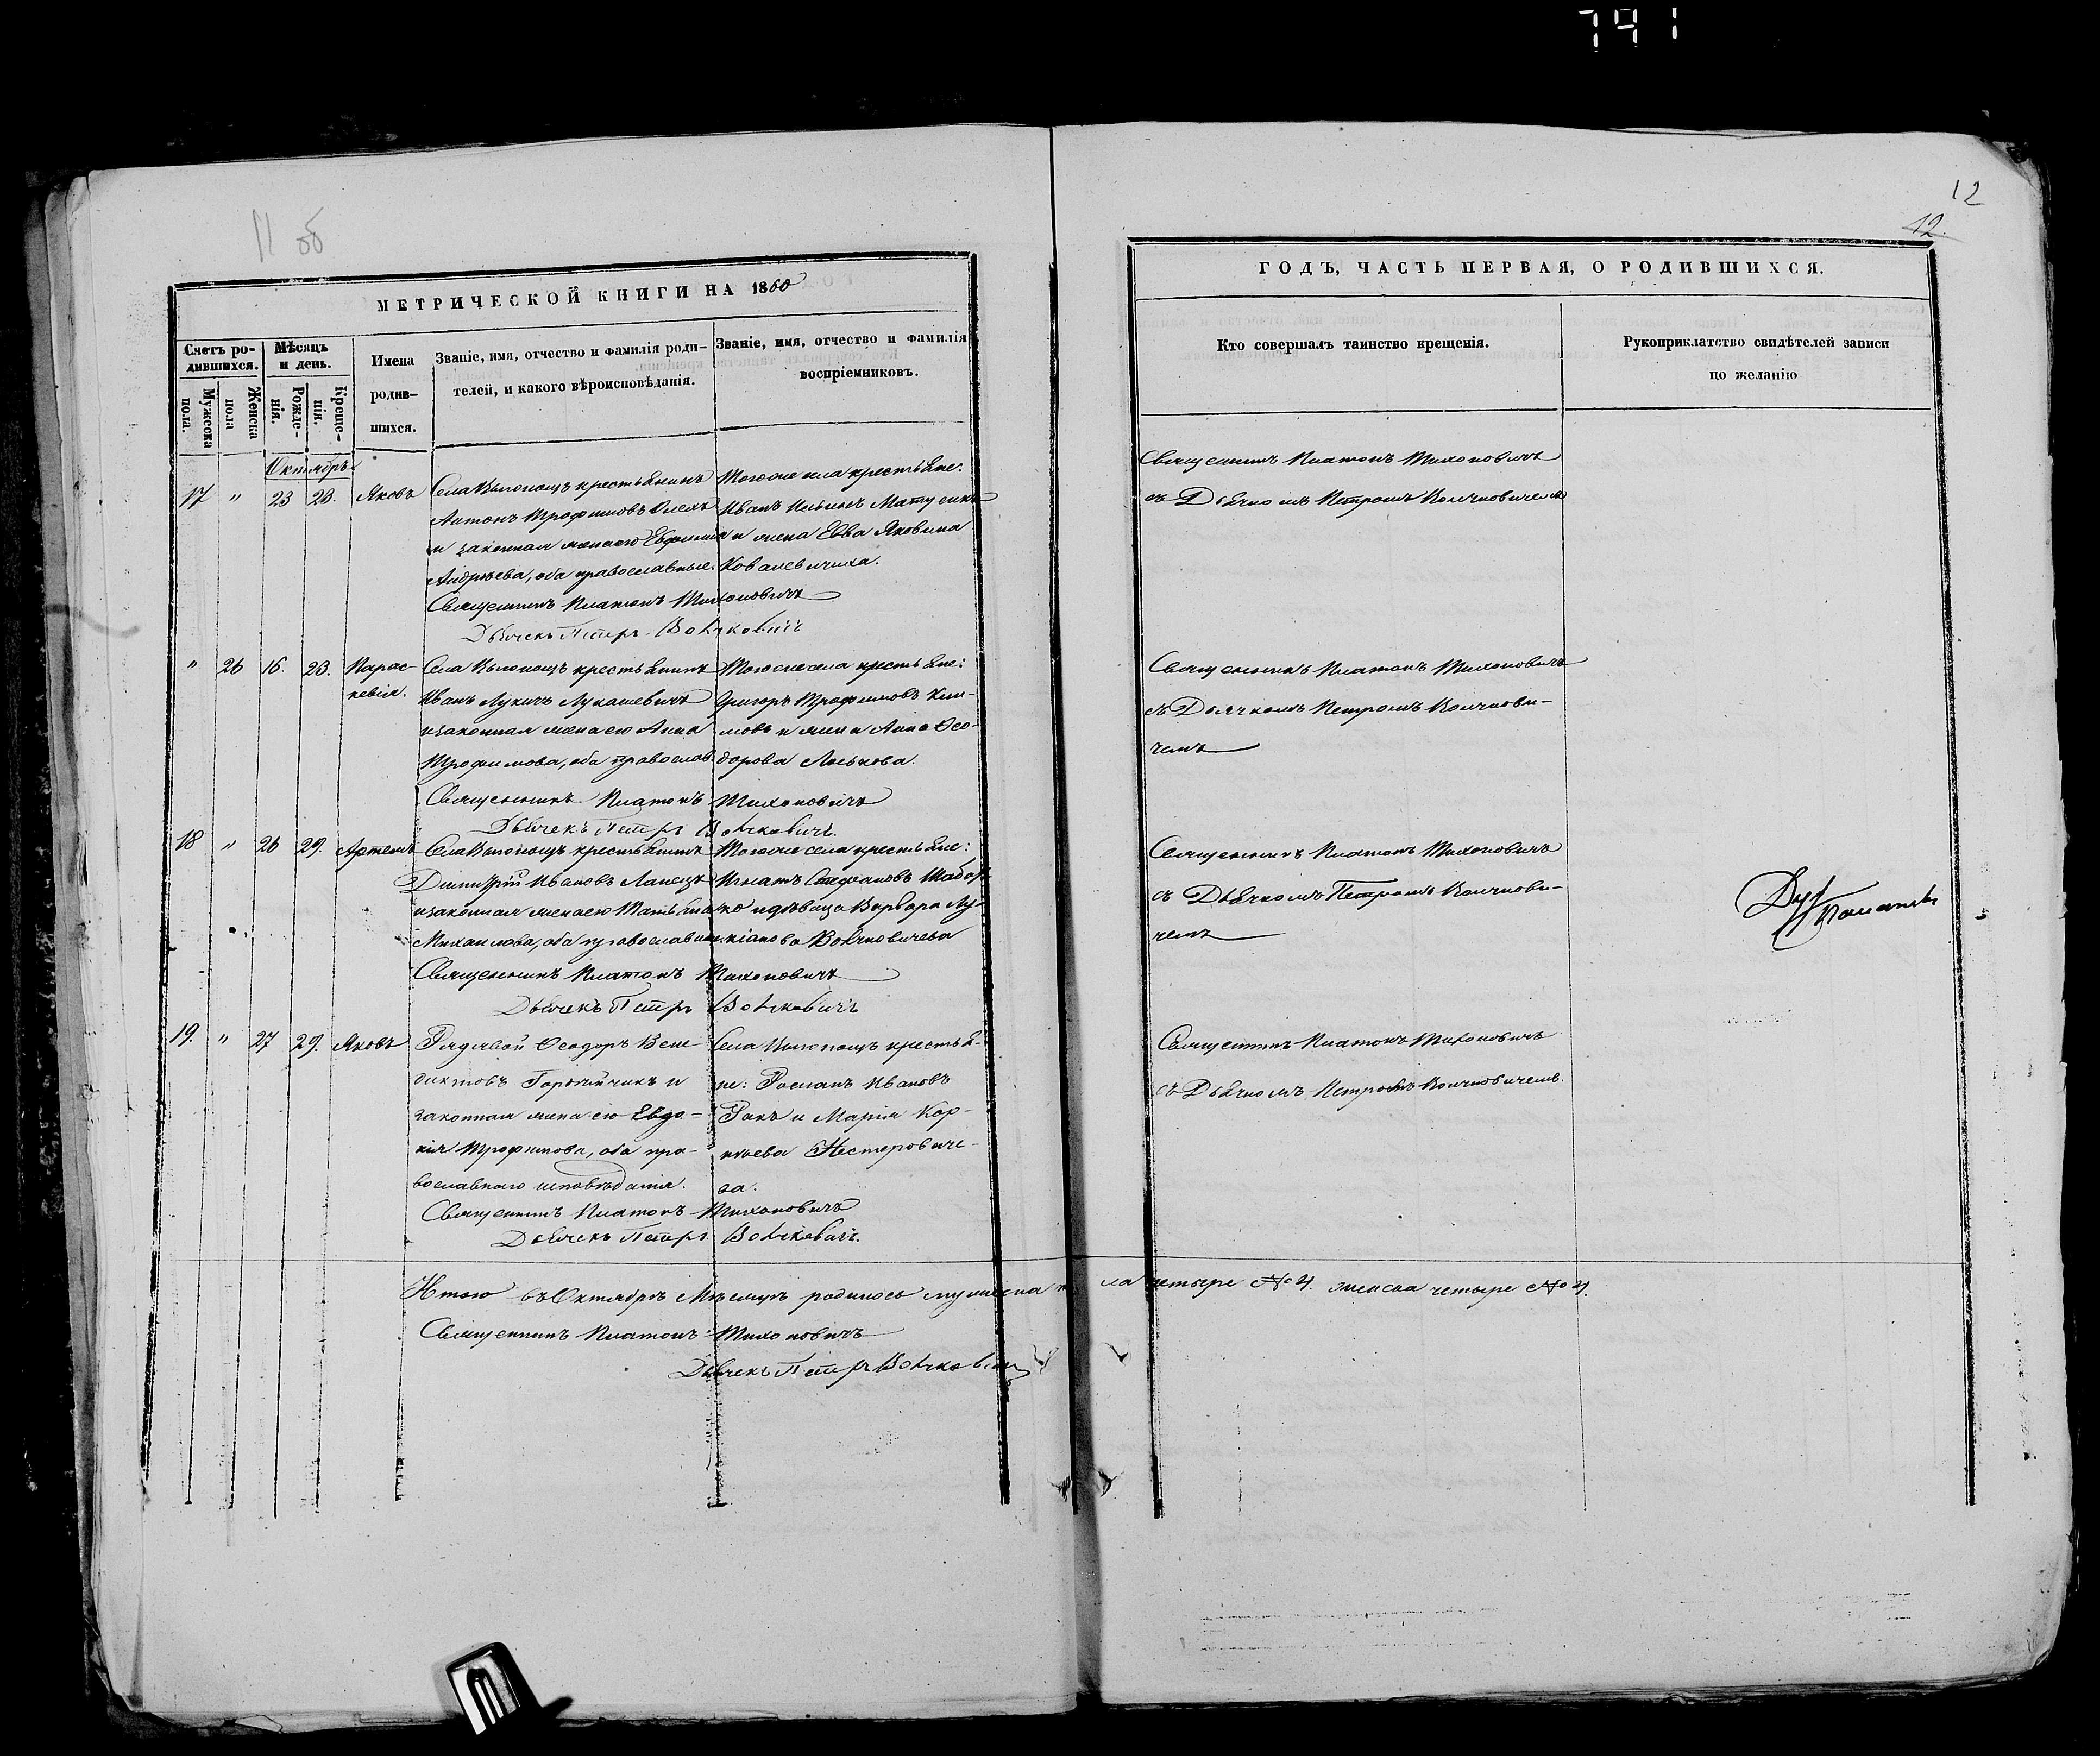 741
11 об
12
12.
МЕТРИЧЕСКОЙ КНИГИ НА 1860
ГОДЪ, ЧАСТЬ ПЕРВАЯ, О РОДИВШИХСЯ.
Счетъ ро-
дившихся.
Мужеска
пола.
Женска
пола
Мѣсяцъ
и день.
Рожде-
нія.
Креще-
нія.
Имена
родив-
шихся.
Званіе, имя, отчество и фамилія роди-
телей, и какого вѣроисповѣданія.
Званіе, имя, отчество и фамилія
воспріемниковъ.
Кто совершалъ таинство крещенія.
Рукоприклатство свидѣтелей записи
по желанію
Октябрь
17 " 23 23. Яковъ
Села крестьянинъ
Антонъ Трофимовъ
и законная жена его Евфимія
Андреева, оба православные.
Священникъ Платонъ Тихоновичъ
Дьячекъ Петръ Волчковичъ
Тогоже села крестьяне:
Иванъ Ильинъ
и жена Евва Яковлева
Ковалевичиха.
Священникъ Платонъ Тихоновичъ
съ Дьячкомъ Петромъ Волчковичемъ
" 26 16. 23. Парас-
кевія.
Села крестьянинъ
Иванъ Лукичъ Лукашевичъ
и законная жена его Анна
Трофимова, оба православ.
Священникъ Платонъ Тихоновичъ
Дьячекъ Петръ Волчковичъ.
Тогоже села крестьяне:
Григоръ Трофимовъ Кли-
мовъ и жена Анна Ѳео-
дорова
Священникъ Платонъ Тихоновичъ
съ Дьячкомъ Петромъ Волчкови-
чемъ
18 " 26 29. Артемъ
Села крестьянинъ
Димитрій Ивановъ
и законная жена его Татьяна
Михайлова, оба православные
Священникъ Платонъ Тихоновичъ
Дьячекъ Петръ Волчковичъ
Тогоже села крестьяне:
Игнатъ Стефановъ
и дѣвица Варвара Лу-
кіанова Волчковичева
Священникъ Платонъ Тихоновичъ
съ Дьячкомъ Петромъ Волчкови-
чемъ
19. " 27 29. Яковъ
Рядовой Ѳеодоръ Вене-
диктовъ и
законная жена его Евдо-
кія Трофимова, оба пра-
вославнаго исповѣданія.
Священникъ Платонъ Тихоновичъ
Дьячекъ Петръ Волчковичъ.
Села крестья-
не: Романъ Ивановъ
Ракъ и Марія Кор-
нѣева Нестерович-
ва.
Священникъ Платонъ Тихоновичъ
съ Дьячкомъ Петромъ Волчковичемъ.
Итого въ Октябрѣ Мѣсяцѣ родилось мужеска по ла четыре № 4. женска четыре № 4.
Священникъ Платонъ Тихоновичъ
Дьячекъ Петръ Волчковичъ